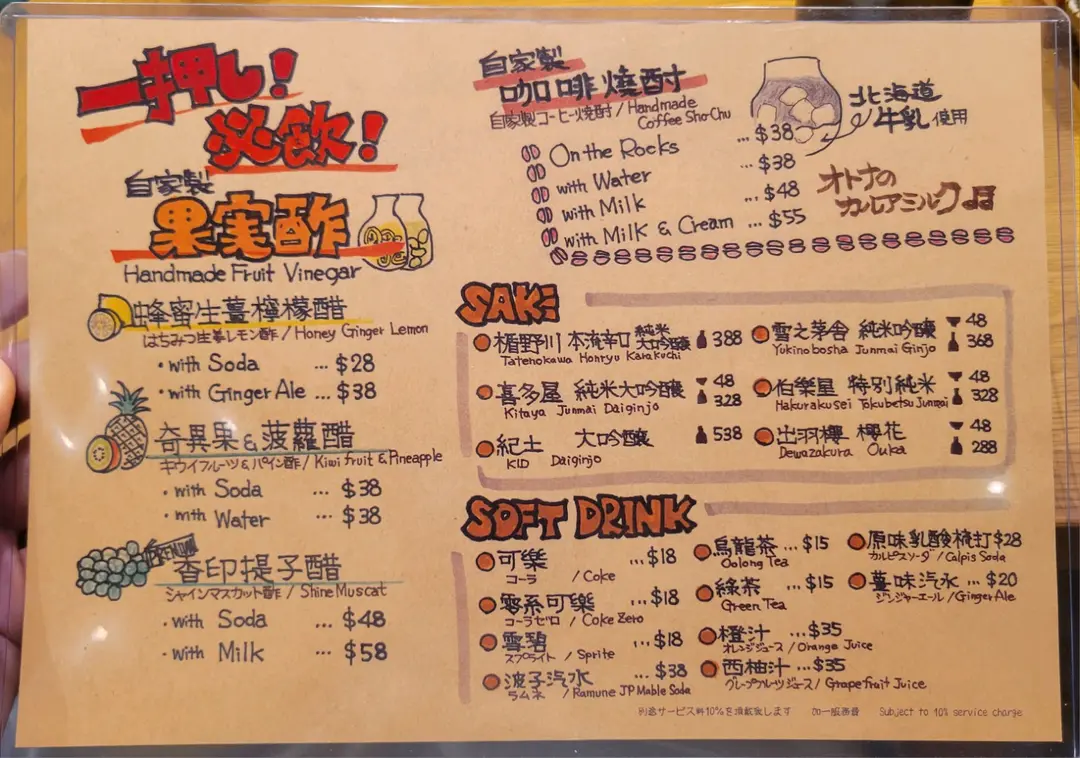 一押し!
必飲!
自家製
果実酢
Handmade Fruit Vinegar
蜂蜜生薑檸檬醋
はちみつ生姜レモン酢 / Honey Ginger Lemon
・with Soda ... $28
・with Ginger Ale ... $38
奇異果&菠蘿醋
キウイフルーツ&パイン酢 / Kiwi fruit & Pineapple
・with Soda ... $38
・with Water ... $38
PREMIUM
香印提子醋
シャインマスカット酢 / Shine Muscat
・with Soda ... $48
・with Milk ... $58
自家製
咖啡燒酎
自家製コーヒー焼酎 / Handmade
Coffee Sho-Chu
On the Rocks ... $38
with Water ... $38
with Milk ... $48
with Milk & Cream ... $55
北海道
牛乳使用
オトナの
カルアミルク
SAKE
楯野川 本流辛口 純米大吟釀 388
Tatenokawa Honryu Karakuchi
喜多屋 純米大吟釀 48
Kitaya Junmai Daiginjo 328
紀土 大吟釀 538
KID Daiginjo
雪之茅舎 純米吟釀 48
Yukinobosha Junmai Ginjo 368
伯樂星 特別純米 48
Hakurakusei Tokubetsu Junmai 328
出羽櫻 櫻花 48
Dewazakura Ouka 288
SOFT DRINK
可樂 ... $18
コーラ / Coke
零系可樂 ... $18
コーラゼロ / Coke Zero
雪碧 ... $18
スプライト / Sprite
波子汽水 ... $38
ラムネ / Ramune JP Mable Soda
烏龍茶 ... $15
Oolong Tea
綠茶 ... $15
Green Tea
橙汁 ... $35
オレンジジュース / Orange Juice
西柚汁 ... $35
グレープフルーツジュース / Grapefruit Juice
原味乳酸梳打 $28
カルピスソーダ / Calpis Soda
薑味汽水 ... $20
ジンジャーエール / Ginger Ale
別途サービス料10%を頂戴致します 加一服務費 Subject to 10% service charge